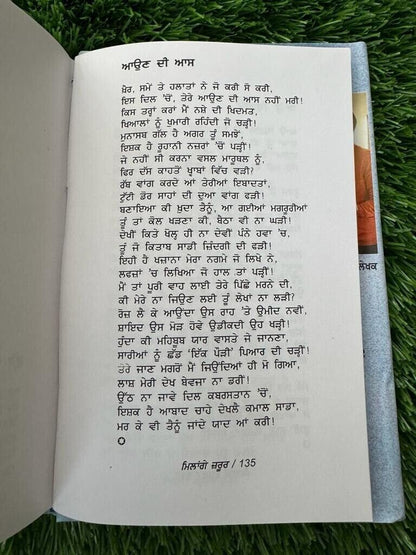 ਆਉਣ ਦੀ ਆਸ
ਖ਼ੈਰ, ਸਮੇਂ ਤੇ ਹਲਾਤਾਂ ਨੇ ਜੋ ਕਰੀ ਸੋ ਕਰੀ,
ਇਸ ਦਿਲ 'ਚੋਂ, ਤੇਰੇ ਆਉਣ ਦੀ ਆਸ ਨਹੀਂ ਮਰੀ!
ਕਿਸ ਤਰ੍ਹਾਂ ਕਰਾਂ ਮੈਂ ਨਸ਼ੇ ਦੀ ਖਿਦਮਤ,
ਖਿਆਲਾਂ ਨੂੰ ਖੁਮਾਰੀ ਰਹਿੰਦੀ ਜੋ ਚੜ੍ਹੀ!
ਮੁਨਾਸਬ ਗੱਲ ਹੈ ਅਗਰ ਤੂੰ ਸਮਝੇਂ,
ਇਸ਼ਕ ਹੈ ਰੂਹਾਨੀ ਨਜ਼ਰਾਂ 'ਚੋਂ ਪੜੀਂ!
ਜੇ ਨਹੀਂ ਸੀ ਕਰਨਾ ਵਸਲ ਮਾਰੂਥਲ ਨੂੰ,
ਫਿਰ ਦੱਸ ਕਾਹਤੋਂ ਖ੍ਵਾਬਾਂ ਵਿੱਚ ਵੜੀ?
ਰੱਬ ਵਾਂਗ ਕਰਦੇ ਆਂ ਤੇਰੀਆਂ ਇਬਾਦਤਾਂ,
ਟੁੱਟੀ ਡੋਰ ਸਾਹਾਂ ਦੀ ਦੁਆ ਵਾਂਗ ਫੜੀ!
ਬਣਾਇਆ ਕੀ ਖ਼ੁਦਾ ਤੈਨੂੰ, ਆ ਗਈਆਂ ਮਗਰੂਰੀਆਂ
ਤੂੰ ਤਾਂ ਕੋਲ ਖੜਣਾ ਕੀ, ਬੈਠਾ ਵੀ ਨਾ ਘੜੀ!
ਦੇਖੀਂ ਕਿਤੇ ਖੋਲ੍ਹ ਹੀ ਨਾ ਦੇਵੀਂ ਪੰਨੇ ਹਵਾ 'ਚ,
ਤੂੰ ਜੋ ਕਿਤਾਬ ਸਾਡੀ ਜ਼ਿੰਦਗੀ ਦੀ ਫੜੀ!
ਇਹੀ ਹੈ ਖਜ਼ਾਨਾ ਮੇਰਾ ਨਗਮੇ ਜੋ ਲਿਖੇ ਨੇ,
ਲਫਜ਼ਾਂ 'ਚ ਲਿਖਿਆ ਜੋ ਹਾਲ ਤਾਂ ਪੜੀਂ!
ਮੈਂ ਤਾਂ ਪੂਰੀ ਵਾਹ ਲਾਈ ਤੇਰੇ ਪਿੱਛੇ ਮਰਨੇ ਦੀ,
ਕੀ ਮੇਰੇ ਨਾ ਜਿਉਣ ਲਈ ਤੂੰ ਲੇਖਾਂ ਨਾ ਲੜੀ?
ਰੋਜ਼ ਲੈ ਕੇ ਆਉਂਦਾ ਉਸ ਰਾਹ 'ਤੇ ਉਮੀਦ ਨਵੀਂ,
ਸ਼ਾਇਦ ਉਸ ਮੋੜ ਹੋਵੇ ਉਡੀਕਦੀ ਉਹ ਖੜ੍ਹੀ!
ਹੁੰਦਾ ਕੀ ਮਹਿਬੂਬ ਯਾਰ ਵਾਸਤੇ ਜੇ ਜਾਨਣਾ,
ਸਾਰੀਆਂ ਨੂੰ ਛੱਡ 'ਇੱਕ ਪੌੜੀ' ਪਿਆਰ ਦੀ ਚੜ੍ਹੀਂ!
ਤੇਰੇ ਜਾਣ ਮਗਰੋਂ ਮੈਂ ਜਿਉਂਦਿਆਂ ਹੀ ਮੋ ਗਿਆ,
ਲਾਸ਼ ਮੇਰੀ ਦੇਖ ਬੇਵਜਾ ਨਾ ਡਰੀਂ!
ਉੱਠ ਨਾ ਜਾਵੇ ਦਿਲ ਕਬਰਸਤਾਨ 'ਚੋਂ,
ਇਸ਼ਕ ਹੈ ਆਬਾਦ ਚਾਹੇ ਦੇਖਲੈ ਕਮਾਲ ਸਾਡਾ,
ਮਰ ਕੇ ਵੀ ਤੈਨੂੰ ਜਾਂਦੇ ਯਾਦ ਆਂ ਕਰੀ!
ਮਿਲਾਂਗੇ ਜ਼ਰੂਰ / 135
ਲੇਖਕ